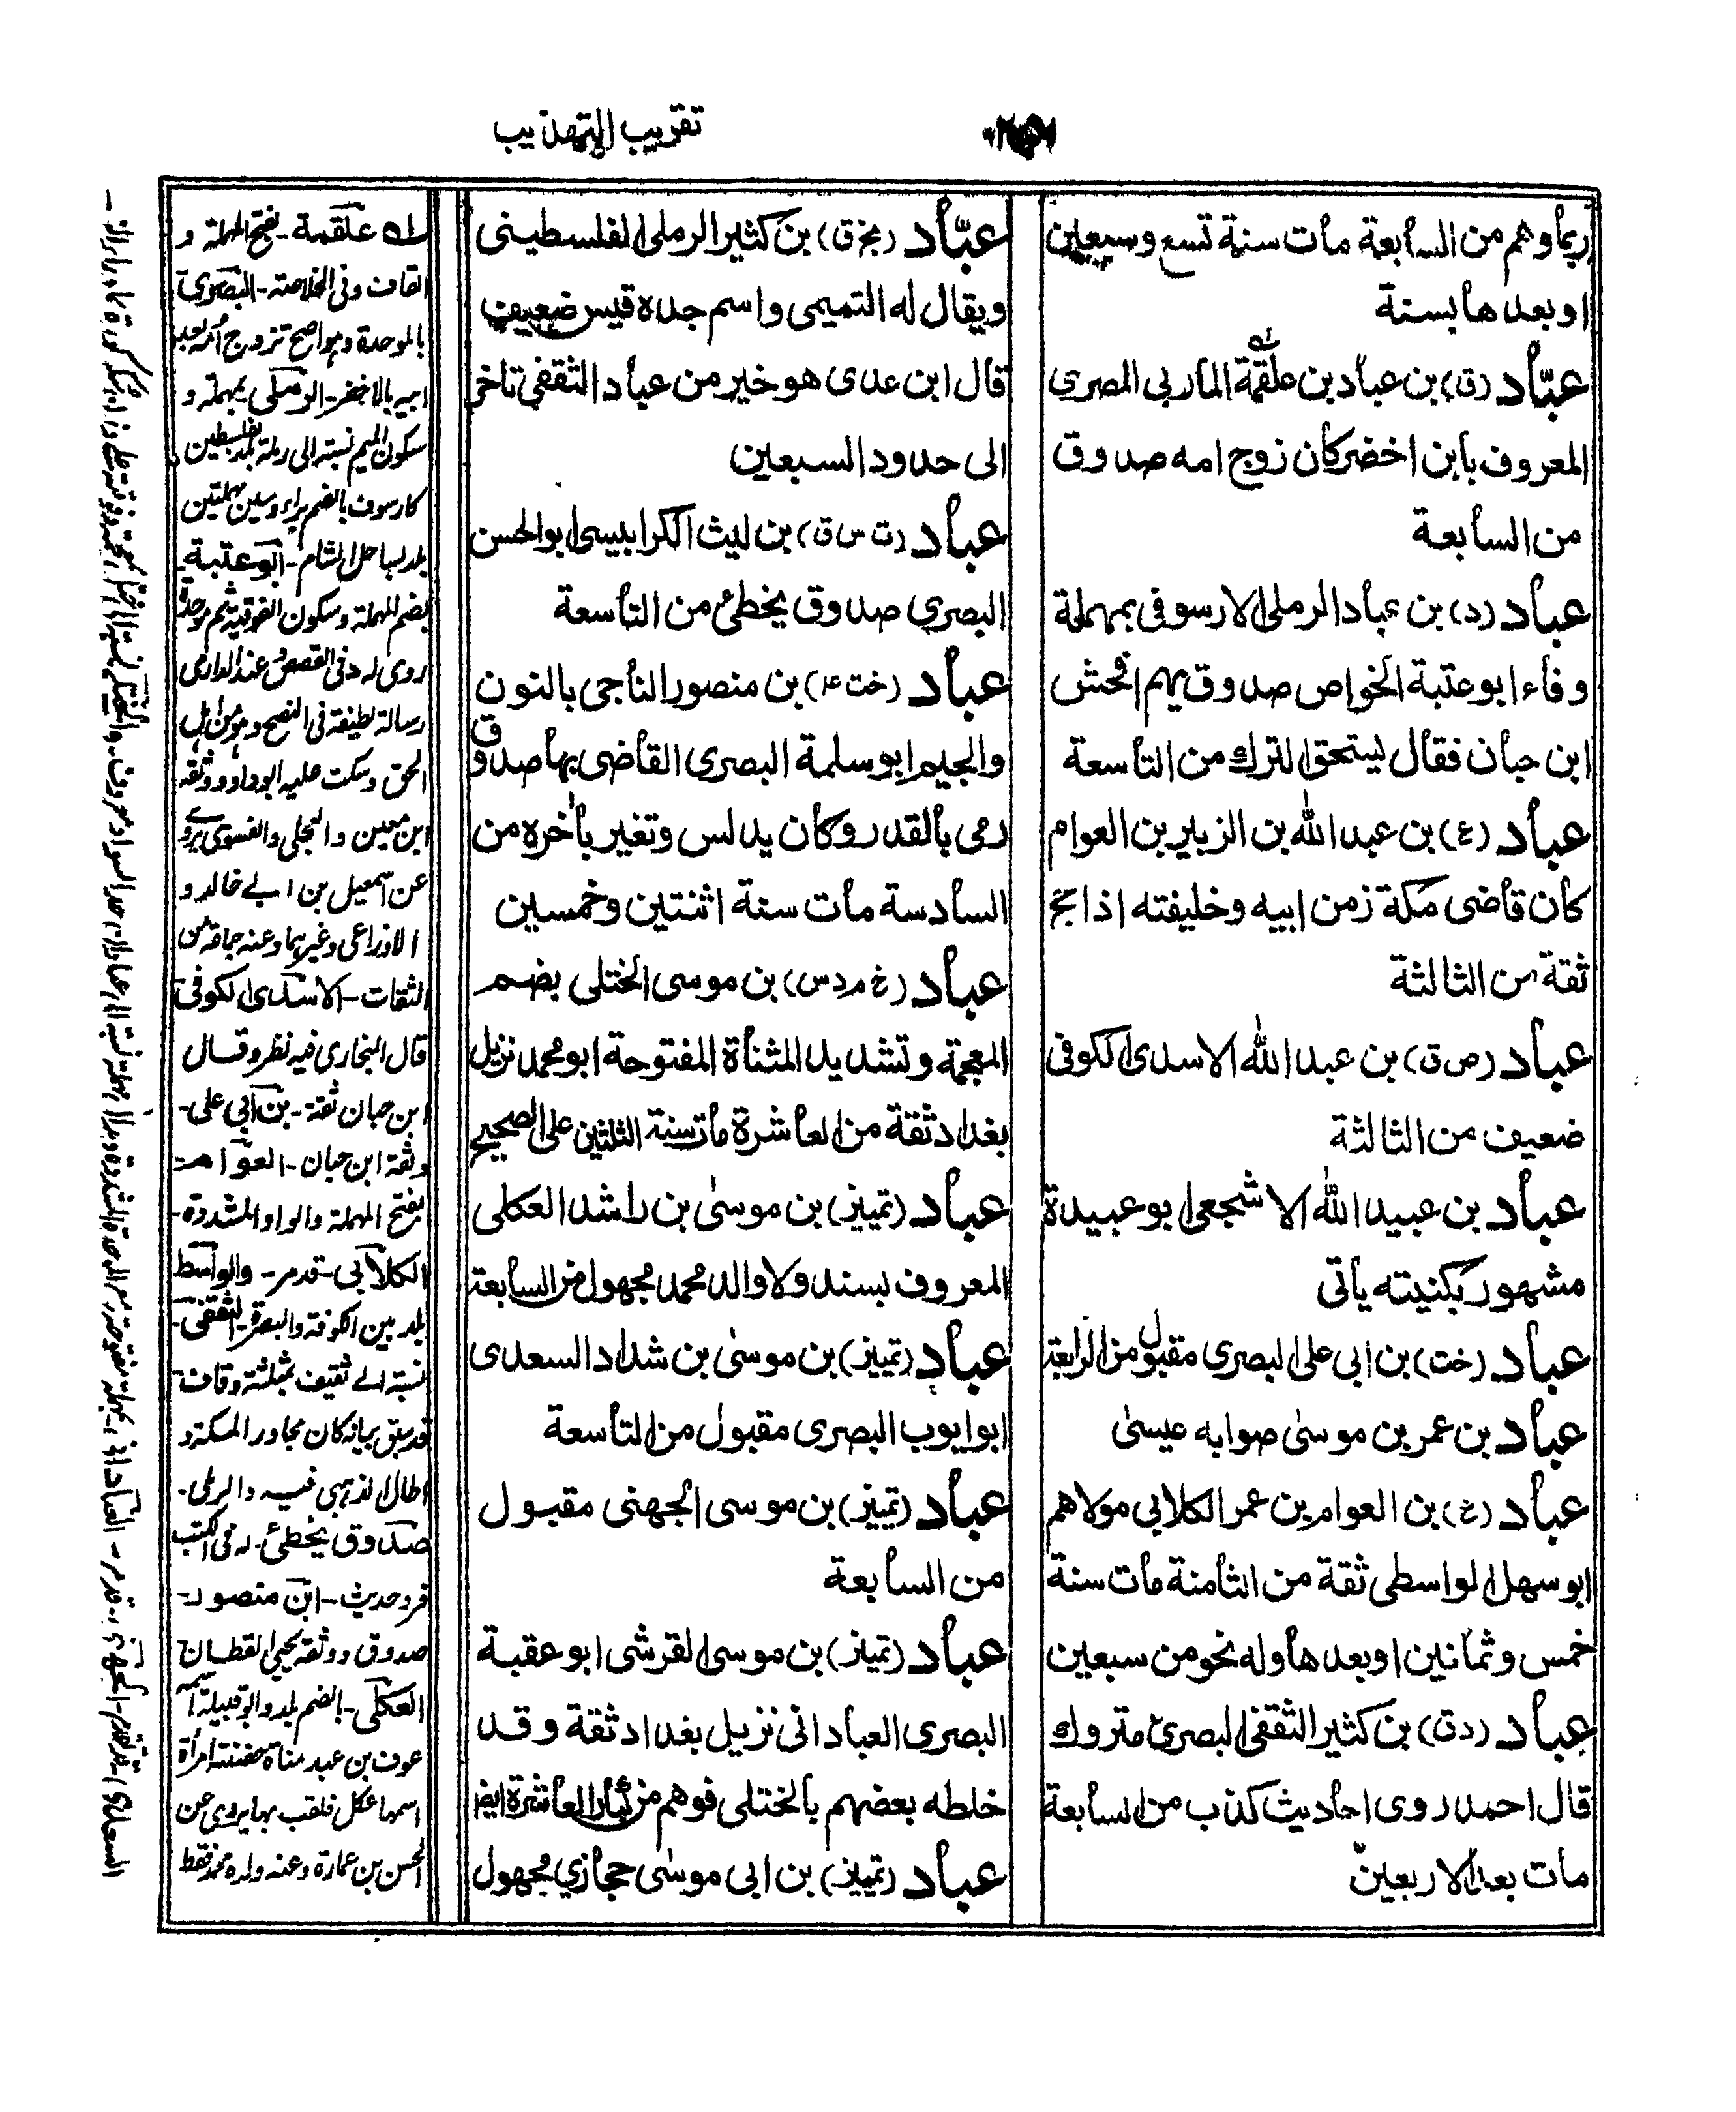 تقريب التهذيب
ربما وهم من السابعة مات سنة تسع وسبعين
او بعدها بسنة
عبّاد (ق) بن عباد بن علقمة المازني المصري
المعروف بابن اخضر كان زوج امه صدوق
من السابعة
عباد (د) بن عباد الرملى الارسوفى بمهملة
وفاء ابو عتبة الخواص صدوق يهم افحش
ابن حبان فقال يستحق الترك من التاسعة
عباد (ع) بن عبد الله بن الزبير بن العوام
كان قاضى مكة زمن ابيه وخليفته اذا حج
ثقة من الثالثة
عباد (ص ق) بن عبد الله الاسدى الكوفى
ضعيف من الثالثة
عباد بن عبيد الله الاشجعى ابو عبيدة
مشهور بكنيته يأتى
عباد (خت) بن ابى على البصرى مقبول من الرابعة
عباد بن عمر بن موسىٰ صوابه عيسىٰ
عباد (ع) بن العوام بن عمر الكلابي مولاهم
ابو سهل الواسطى ثقة من الثامنة مات سنة
خمس وثمانين او بعدها وله نحو من سبعين
عباد (د ق) بن كثير الثقفى البصرى متروك
قال احمد روى احاديث كذب من السابعة
مات بعد الاربعين
عبّاد (بخ ق) بن كثير الرملى الفلسطينى
ويقال له التميمى واسم جده قيس ضعيف
قال ابن عدى هو خير من عباد الثقفى تاخر
الى حدود السبعين
عباد (ت س ق) بن ليث الكرابيسى ابو الحسن
البصرى صدوق يخطئ من التاسعة
عباد (خت ٤) بن منصور الناجى بالنون
والجيم ابو سلمة البصرى القاضى بها صدوق
رمى بالقدر وكان يدلس وتغير باخره من
السادسة مات سنة اثنتين وخمسين
عباد (خ م د س) بن موسى الختلى بضم
المعجمة وتشديد المثناة المفتوحة ابو محمد نزيل
بغداد ثقة من العاشرة مات سنة الثلثين على الصحيح
عباد (تمييز) بن موسىٰ بن راشد العكلى
المعروف بسندولا والد محمد مجهول من السابعة
عباد (تمييز) بن موسىٰ بن شداد السعدى
ابو ايوب البصرى مقبول من التاسعة
عباد (تمييز) بن موسى الجهنى مقبول
من السابعة
عباد (تمييز) بن موسى القرشى ابو عقبة
البصرى العبادانى نزيل بغداد ثقة وقد
خلطه بعضهم بالختلى فوهم من كبار العاشرة ايضا
عباد (تمييز) بن ابى موسىٰ حجازي مجهول
علقمة - بفتح المهملة و
القاف وفى الخلاصة - البصرى
بالموحدة وهو اصح تزوج امه
ابيه بالاخضر - الرملى بمهملة و
سكون الميم نسبة الى رملة بلد بفلسطين
كارسوف بالضم براء وسين مهملتين
بلد بساحل الشام - ابو عتبة -
بضم المهملة وسكون الفوقية ثم موحدة
روى له د فى القصص وعند الدارمى
رسالة لطيفة فى النصح وهو من اهل
الحق وسكت عليه ابو داود ووثقه
ابن معين والعجلى والفسوى يروى
عن اسمعيل بن ابى خالد و
الاوزاعى وغيرهما وعنه جماعة من
الثقات - الاسدى الكوفى
قال البخارى فيه نظر وقال
ابن حبان ثقة - بن ابى على -
وثقه ابن حبان - العوام
بفتح المهملة والواو المشددة -
الكلابى - قد مر - والواسط
بلد بين الكوفة والبصرة - الثقفى -
نسبة الى ثقيف بمثلثة وقاف
قد سبق بيانه كان مجاور المكة و
اطال الذهبى فيه - والرملى -
صدوق يخطئ - له فى الكتب
فرد حديث - ابن منصور -
صدوق ووثقه يحيى القطان
العكلى - بالضم بلد وابو قبيلة اسمه
عوف بن عبد مناة حضنته امرأة
اسمها عكل فلقب بها يروى عن
الحسن بن عمارة وعنه ولده محمد فقط